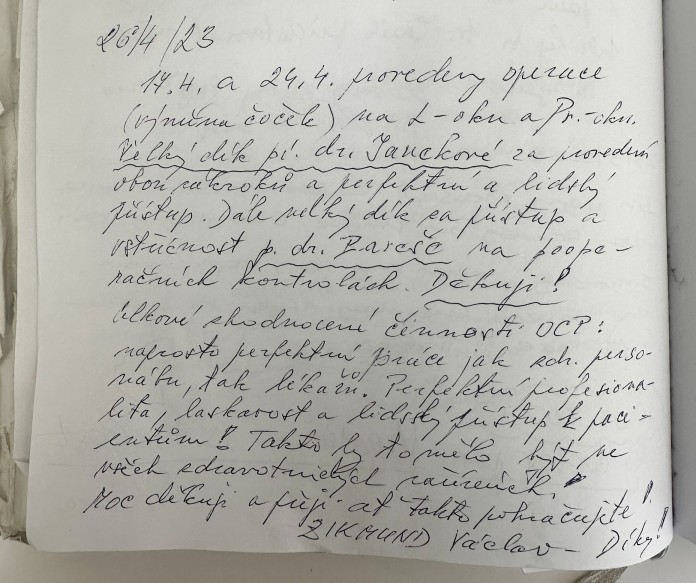 26/4/23
17.4. a 24.4. provedeny operace
(výměna čoček) na L-oku a Pr.-oku.
Velký dík pí. dr. Janečkové za provedení
obou zákroků a perfektní a lidský
přístup. Dále velký dík za přístup a
vstřícnost p. dr. na poope-
račních kontrolách. Děkuji!
Celkové zhodnocení činnosti OCP:
naprosto perfektní práce jak zdr. perso-
nálu, tak lékařů. Perfektní profesiona-
lita, laskavost a lidský přístup k paci-
entům! Takto by to mělo být ve
všech zdravotnických zařízeních!
Moc děkuji a přeji ať takto pokračujete!
ZIKMUND Václav – Díky!